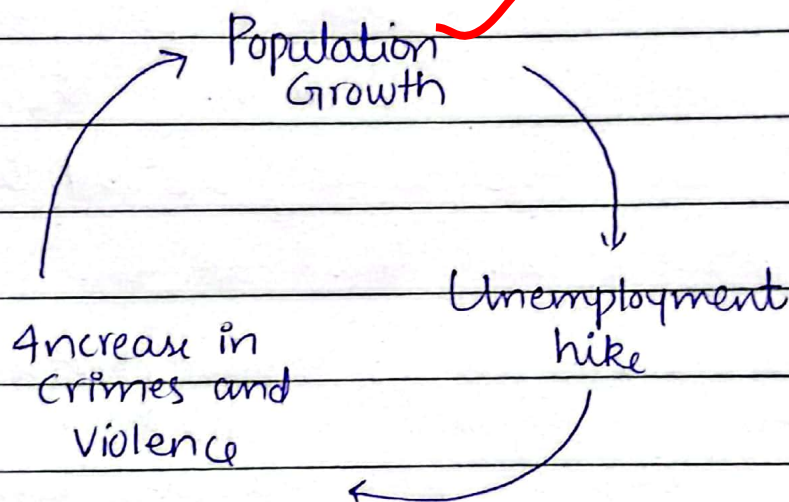 Population
Growth
Unemployment
hike
Increase in
crimes and
Violence